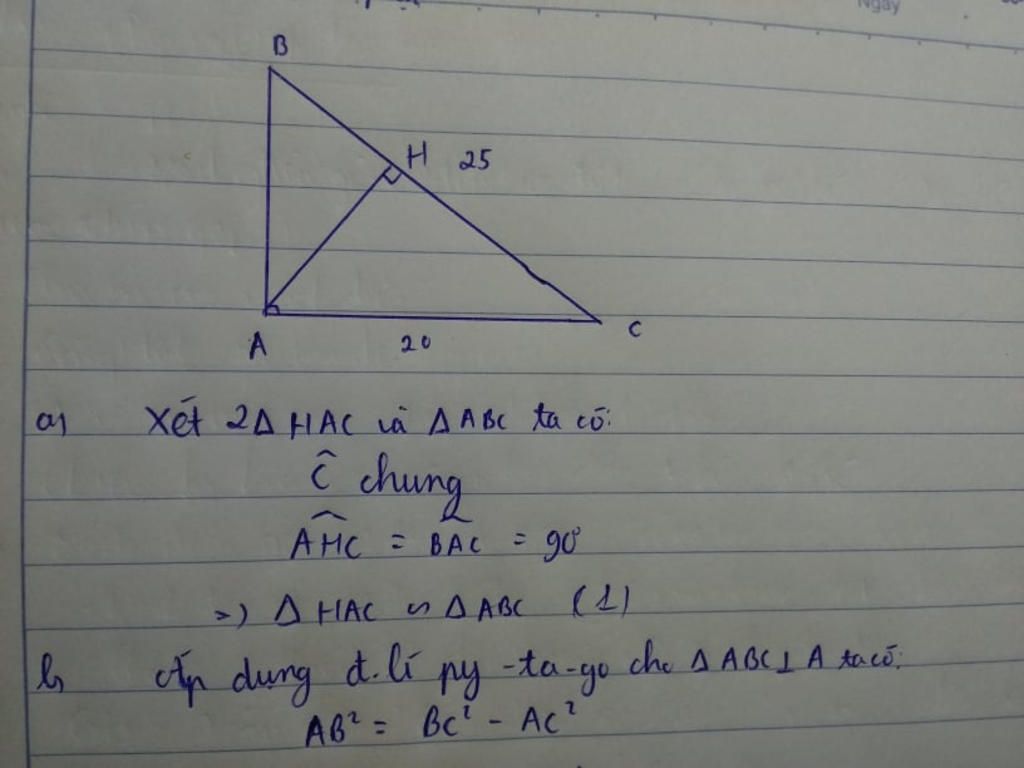 Ngày
B
H 25
A
20
C
a) Xét 2Δ HAC và Δ ABC ta có:
Ĉ chung
AHC = BAC = 90°
=) Δ HAC ∽ Δ ABC (1)
b, Áp dụng đ.lí py-ta-go cho Δ ABC ⊥ A ta có:
AB² = BC² - AC²